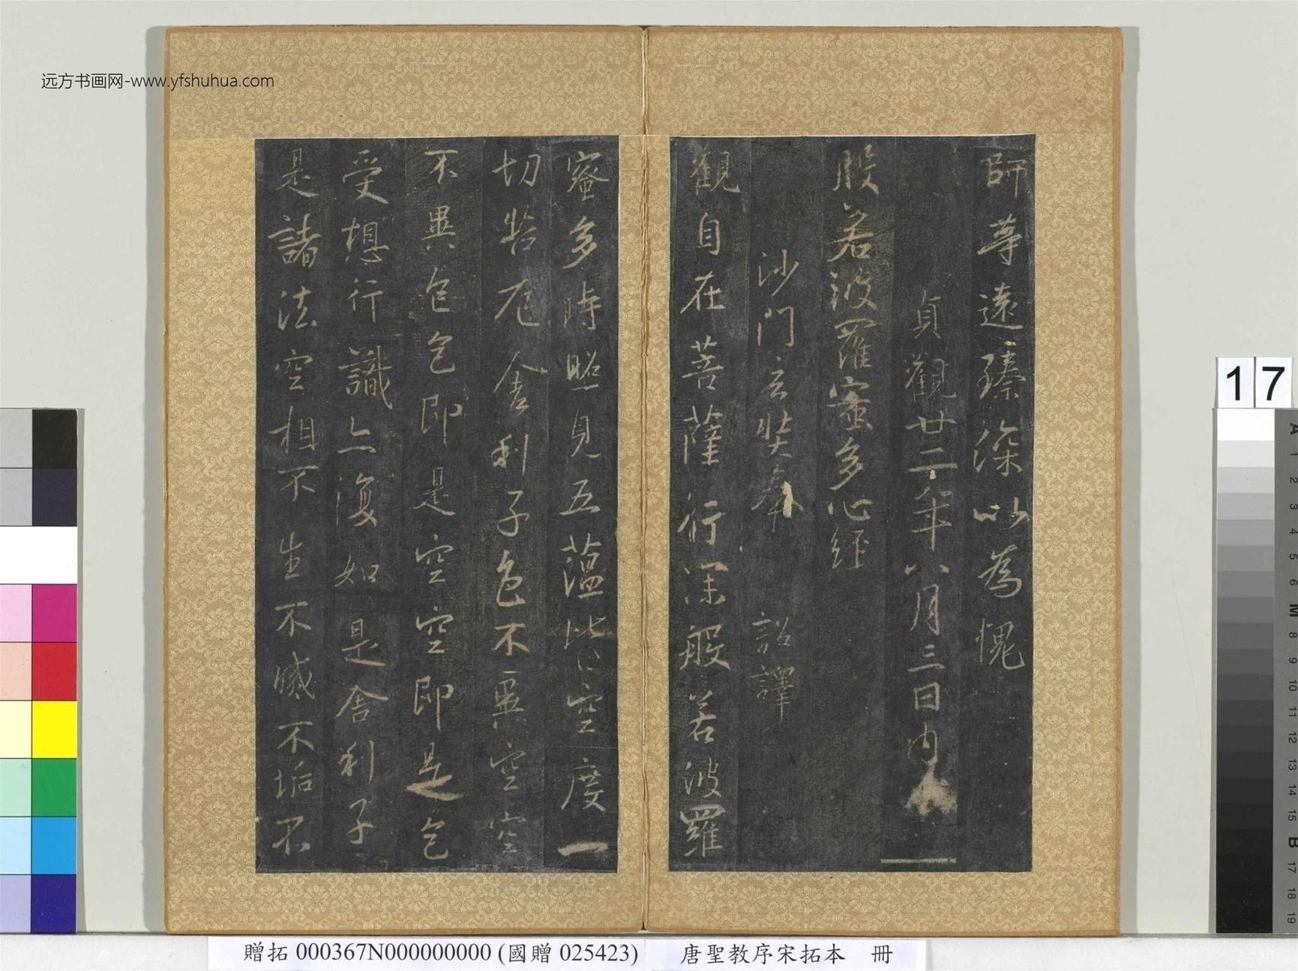 远方书画网-www.yfshuhua.com
師等遠臻深以為愧
貞觀廿二年八月三日內
般若波羅蜜多心經
沙門玄奘奉 詔譯
觀自在菩薩行深般若波羅
蜜多時照見五蘊皆空度一
切苦厄舍利子色不異空空
不異色色即是空空即是色
受想行識亦復如是舍利子
是諸法空相不生不滅不垢不
17
A 1 2 3 4 5 M 8 9 10 11 12 13 14 15 B 17 18 19
贈拓 000367N000000000 (國贈 025423) 唐聖教序宋拓本 冊